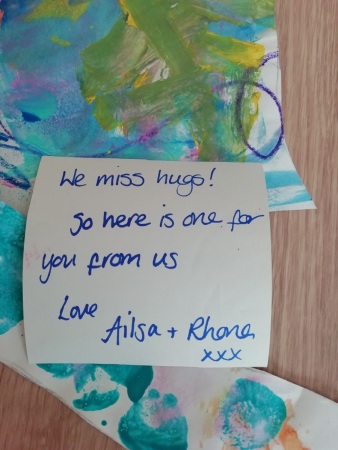 We miss hugs!
So here is one for
you from us
Love
Ailsa + Rhona
xxx